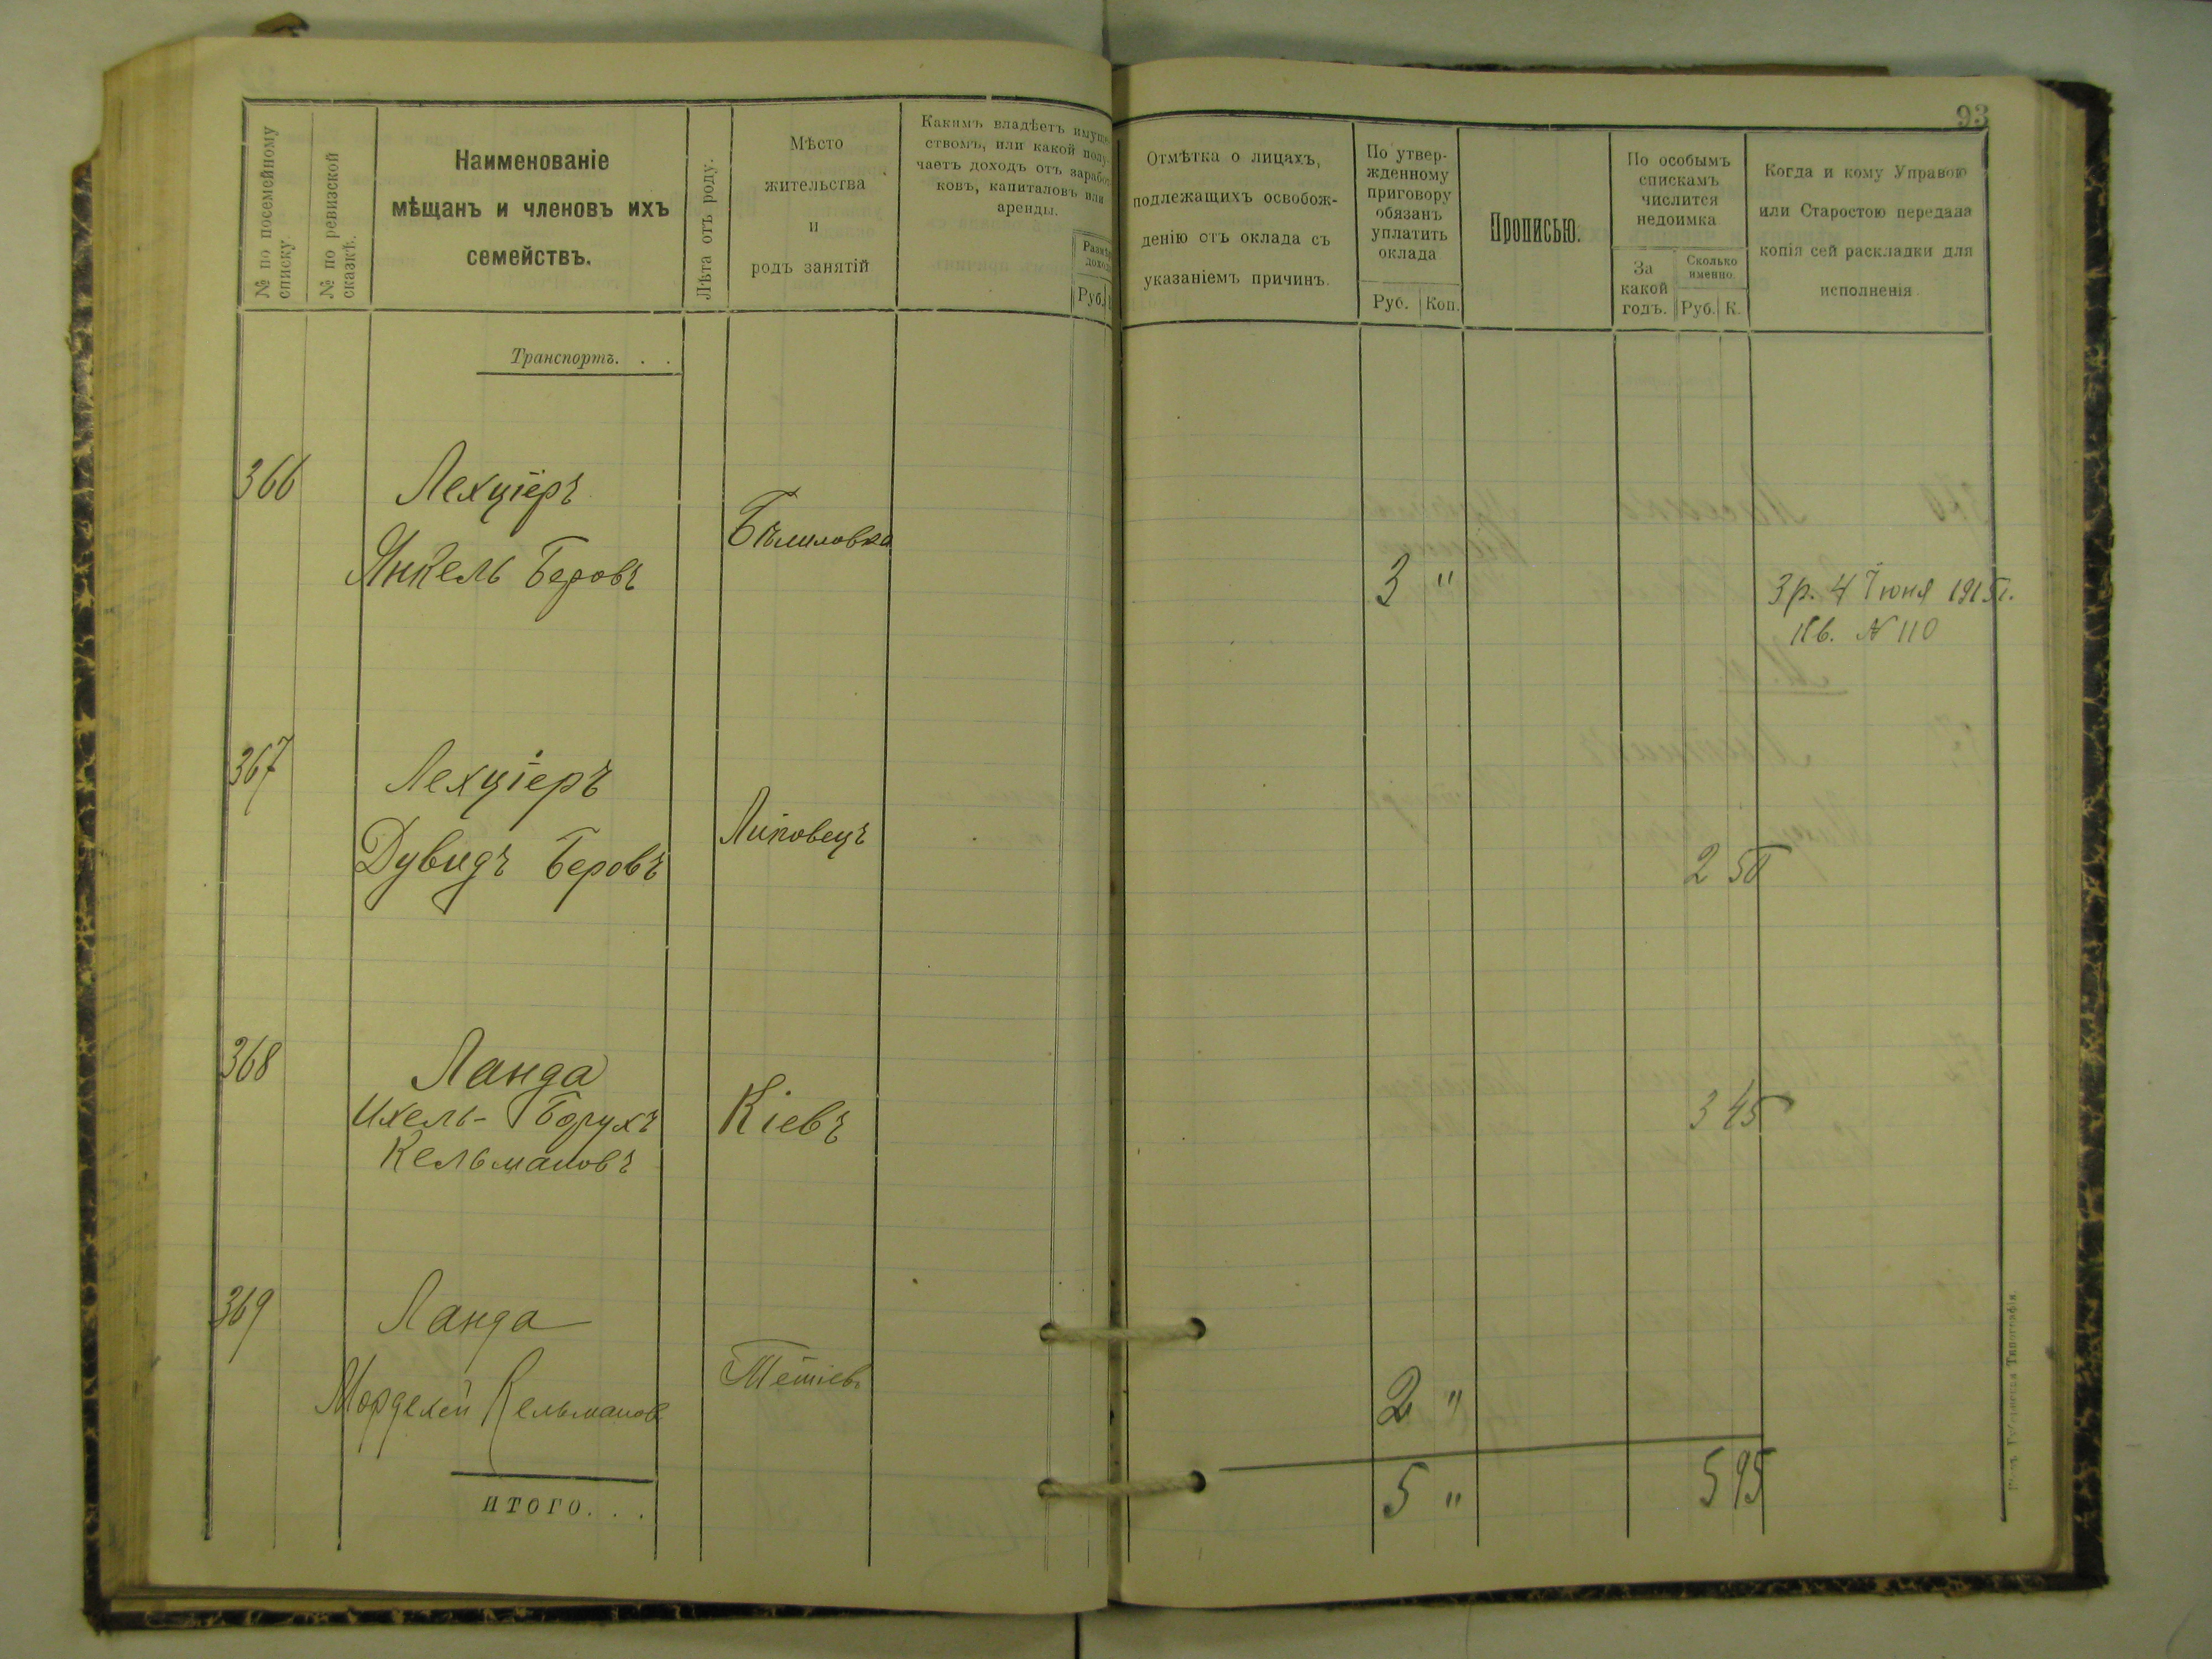 93
№ по посемейному
списку.
№ по ревизской
сказкѣ.
Наименованіе
мѣщанъ и членовъ ихъ
семействъ.
Лѣта отъ роду.
Мѣсто
жительства
и
родъ занятій
Какимъ владѣетъ имуще-
ствомъ, или какой полу-
чаетъ доходъ отъ заработ-
ковъ, капиталовъ или
аренды.
Размѣръ
дохода
Руб.
Отмѣтка о лицахъ,
подлежащихъ освобож-
денію отъ оклада съ
указаніемъ причинъ.
По утвер-
жденному
приговору
обязанъ
уплатить
оклада
Рус. Коп.
Прописью.
По особымъ
спискамъ
числится
недоимка
За
какой
годъ.
Сколько
именно.
Руб. К.
Когда и кому Управою
или Старостою передана
копія сей раскладки для
исполненія.
Транспортъ. . .
366 Лехціеръ
Янкель Беровъ
Бѣлиловка
3 "
3 р. 4 Іюня 1915 г.
Кв. № 110
367 Лехціеръ
Дувидъ Беровъ
Липовецъ
2 50
368 Ланда
Ихель-Борухъ
Кельмановъ
Кіевъ
3 45
369 Ланда
Мордехей Кельманов
Тетіев
2 "
ИТОГО. . .
5 "
5 95